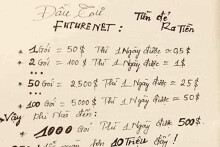 Đầu Tư Tiền đẻ
FUTURENET: Ra Tiền
* 1 Gói = 50$ Thì 1 Ngày được = 0,5$
* 2 Gói = 100$ Thì 1 Ngày được = 1$
...
* 50 Gói = 2500$ Thì 1 Ngày được = 25$
...
* 100 Gói = 5000$ Thì 1 Ngày được = 50$.
Vậy
1000 Gói Thì 1 Ngày được 500$.
hơn 10 Triệu đấy!